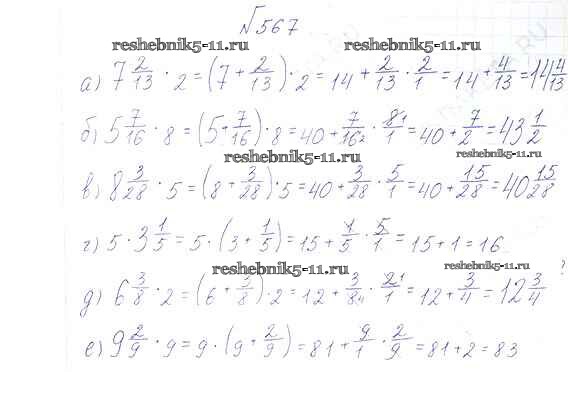 №567
reshebnik5-11.ru reshebnik5-11.ru
а) 7 2/13 · 2 = (7 + 2/13) · 2 = 14 + 2/13 · 2/1 = 14 + 4/13 = 14 4/13
б) 5 7/16 · 8 = (5 + 7/16) · 8 = 40 + 7/16 2 · 8 1/1 = 40 + 7/2 = 43 1/2
reshebnik5-11.ru reshebnik5-11.ru
в) 8 3/28 · 5 = (8 + 3/28) · 5 = 40 + 3/28 · 5/1 = 40 + 15/28 = 40 15/28
г) 5 · 3 1/5 = 5 · (3 + 1/5) = 15 + 1/5 · 5/1 = 15 + 1 = 16
reshebnik5-11.ru reshebnik5-11.ru
д) 6 3/8 · 2 = (6 + 3/8) · 2 = 12 + 3/8 4 · 2 1/1 = 12 + 3/4 = 12 3/4
е) 9 2/9 · 9 = 9 · (9 + 2/9) = 81 + 9/1 · 2/9 = 81 + 2 = 83